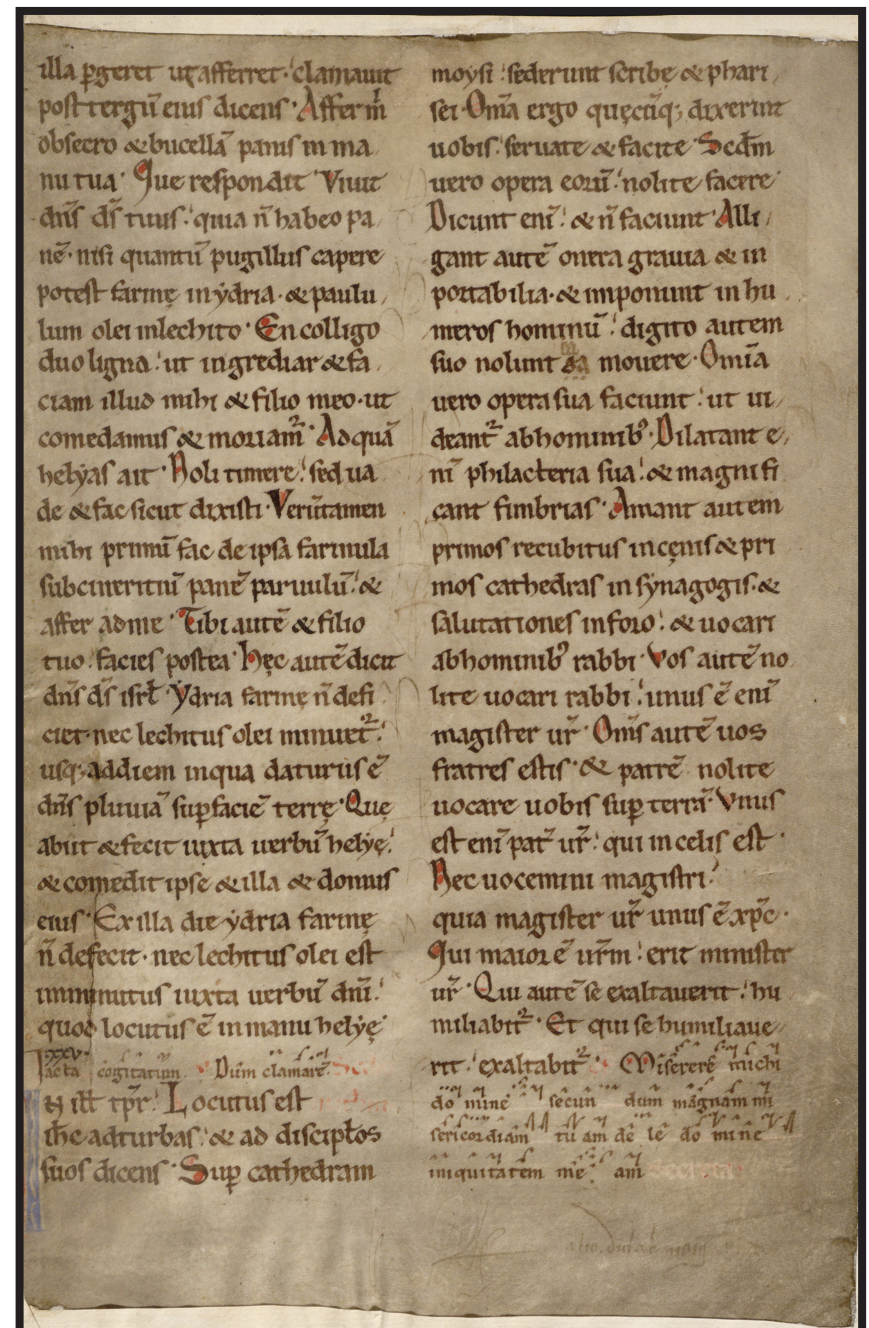 illa ꝑgeret ut afferret. clamauit
post tergū eius dicens. Affer m̄
obsecro & bucellā panis in ma
nu tua. Que respondit. Viuit
dn̄s ds̄ tuus. quia n̄ habeo pa
nē. nisi quantū pugillus capere
potest farinę in ẏdria. & paulu
lum olei in lechito. En colligo
duo ligna. ut ingrediar & fa
ciam illud mihi & filio meo. ut
comedamus & moriam̄. Ad quā
helẏas ait. Noli timere. sed ua
de & fac sicut dixisti. Verūtamen
mihi primū fac de ipsa farinula
subcineritiū panē paruulū. &
affer ad me. Tibi autē & filio
tuo. facies postea. Hęc autē dicit
dn̄s ds̄ isrł. Ẏdria farinę n̄ defi
ciet. nec lechitus olei minuet̄.
usq; ad diem in qua daturus ē
dn̄s pluuiā suꝑ faciē terrę. Quę
abiit & fecit iuxta uerbū helẏę.
& comedit ipse & illa & domus
eius. Ex illa die ẏdria farinę
n̄ defecit. nec lechitus olei est
imminutus iuxta uerbū dn̄i.
quod locutus ē in manu helẏę
Iacta cogitatum Dum clamarē
N ill̄ tp̄r. Locutus est
ih̄c ad turbas. & ad discipłos
suos dicens. Suꝑ cathedram
moysi. sederunt scribę & phari
sei. Om̄a ergo quęcūq; dixerint
uobis. seruate & facite. Scdm̄
uero opera eorū. nolite facere
Dicunt enī. & n̄ faciunt. Alli
gant autē onera grauia & in
portabilia. & imponunt in hu
meros hominū. digito autem
suo nolunt ea mouere. Omīa
uero opera sua faciunt. ut ui
deant̄ ab hominibꝰ. Dilatant e
nī philacteria sua. & magnifi
cant fimbrias. Amant autem
primos recubitus in cęnis & pri
mos cathedras in synagogis. &
salutationes in foro. & uocari
ab hominibꝰ rabbi. Vos autē no
lite uocari rabbi. unus ē enī
magister ur̄. Om̄s autē uos
fratres estis. & patrē nolite
uocare uobis suꝑ terrā. Vnus
est enī pat̄ ur̄. qui in celis est.
Nec uocemini magistri.
quia magister ur̄ unus ē xp̄c.
Qui maior ē ur̄m. erit minister
ur̄. Qui autē se exaltauerit. hu
miliabit̄. Et qui se humiliaue
rit. exaltabit̄. Miserere michi
do mine secun dum magnam mi
sericordiam tu am de le do mine
iniquitatem me am